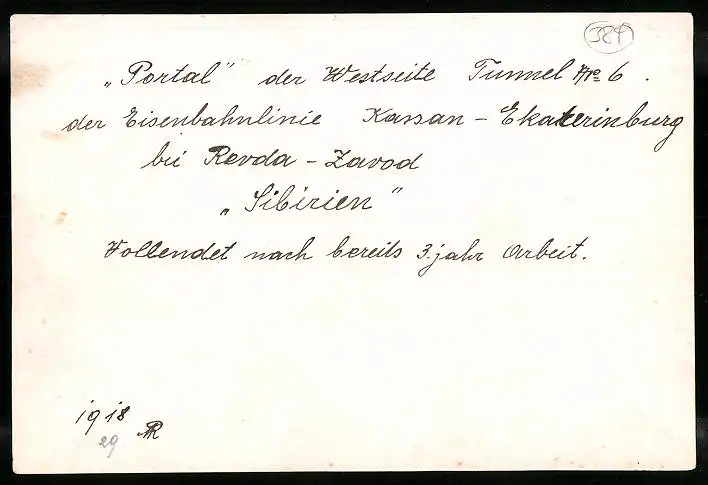 384
„Portal“ der Westseite Tunnel No 6.
der Eisenbahnlinie Kassan - Ekaterinburg
bei Revda - Zavod
„Sibirien“
Vollendet nach bereits 3. jahr Arbeit.
1918
29.